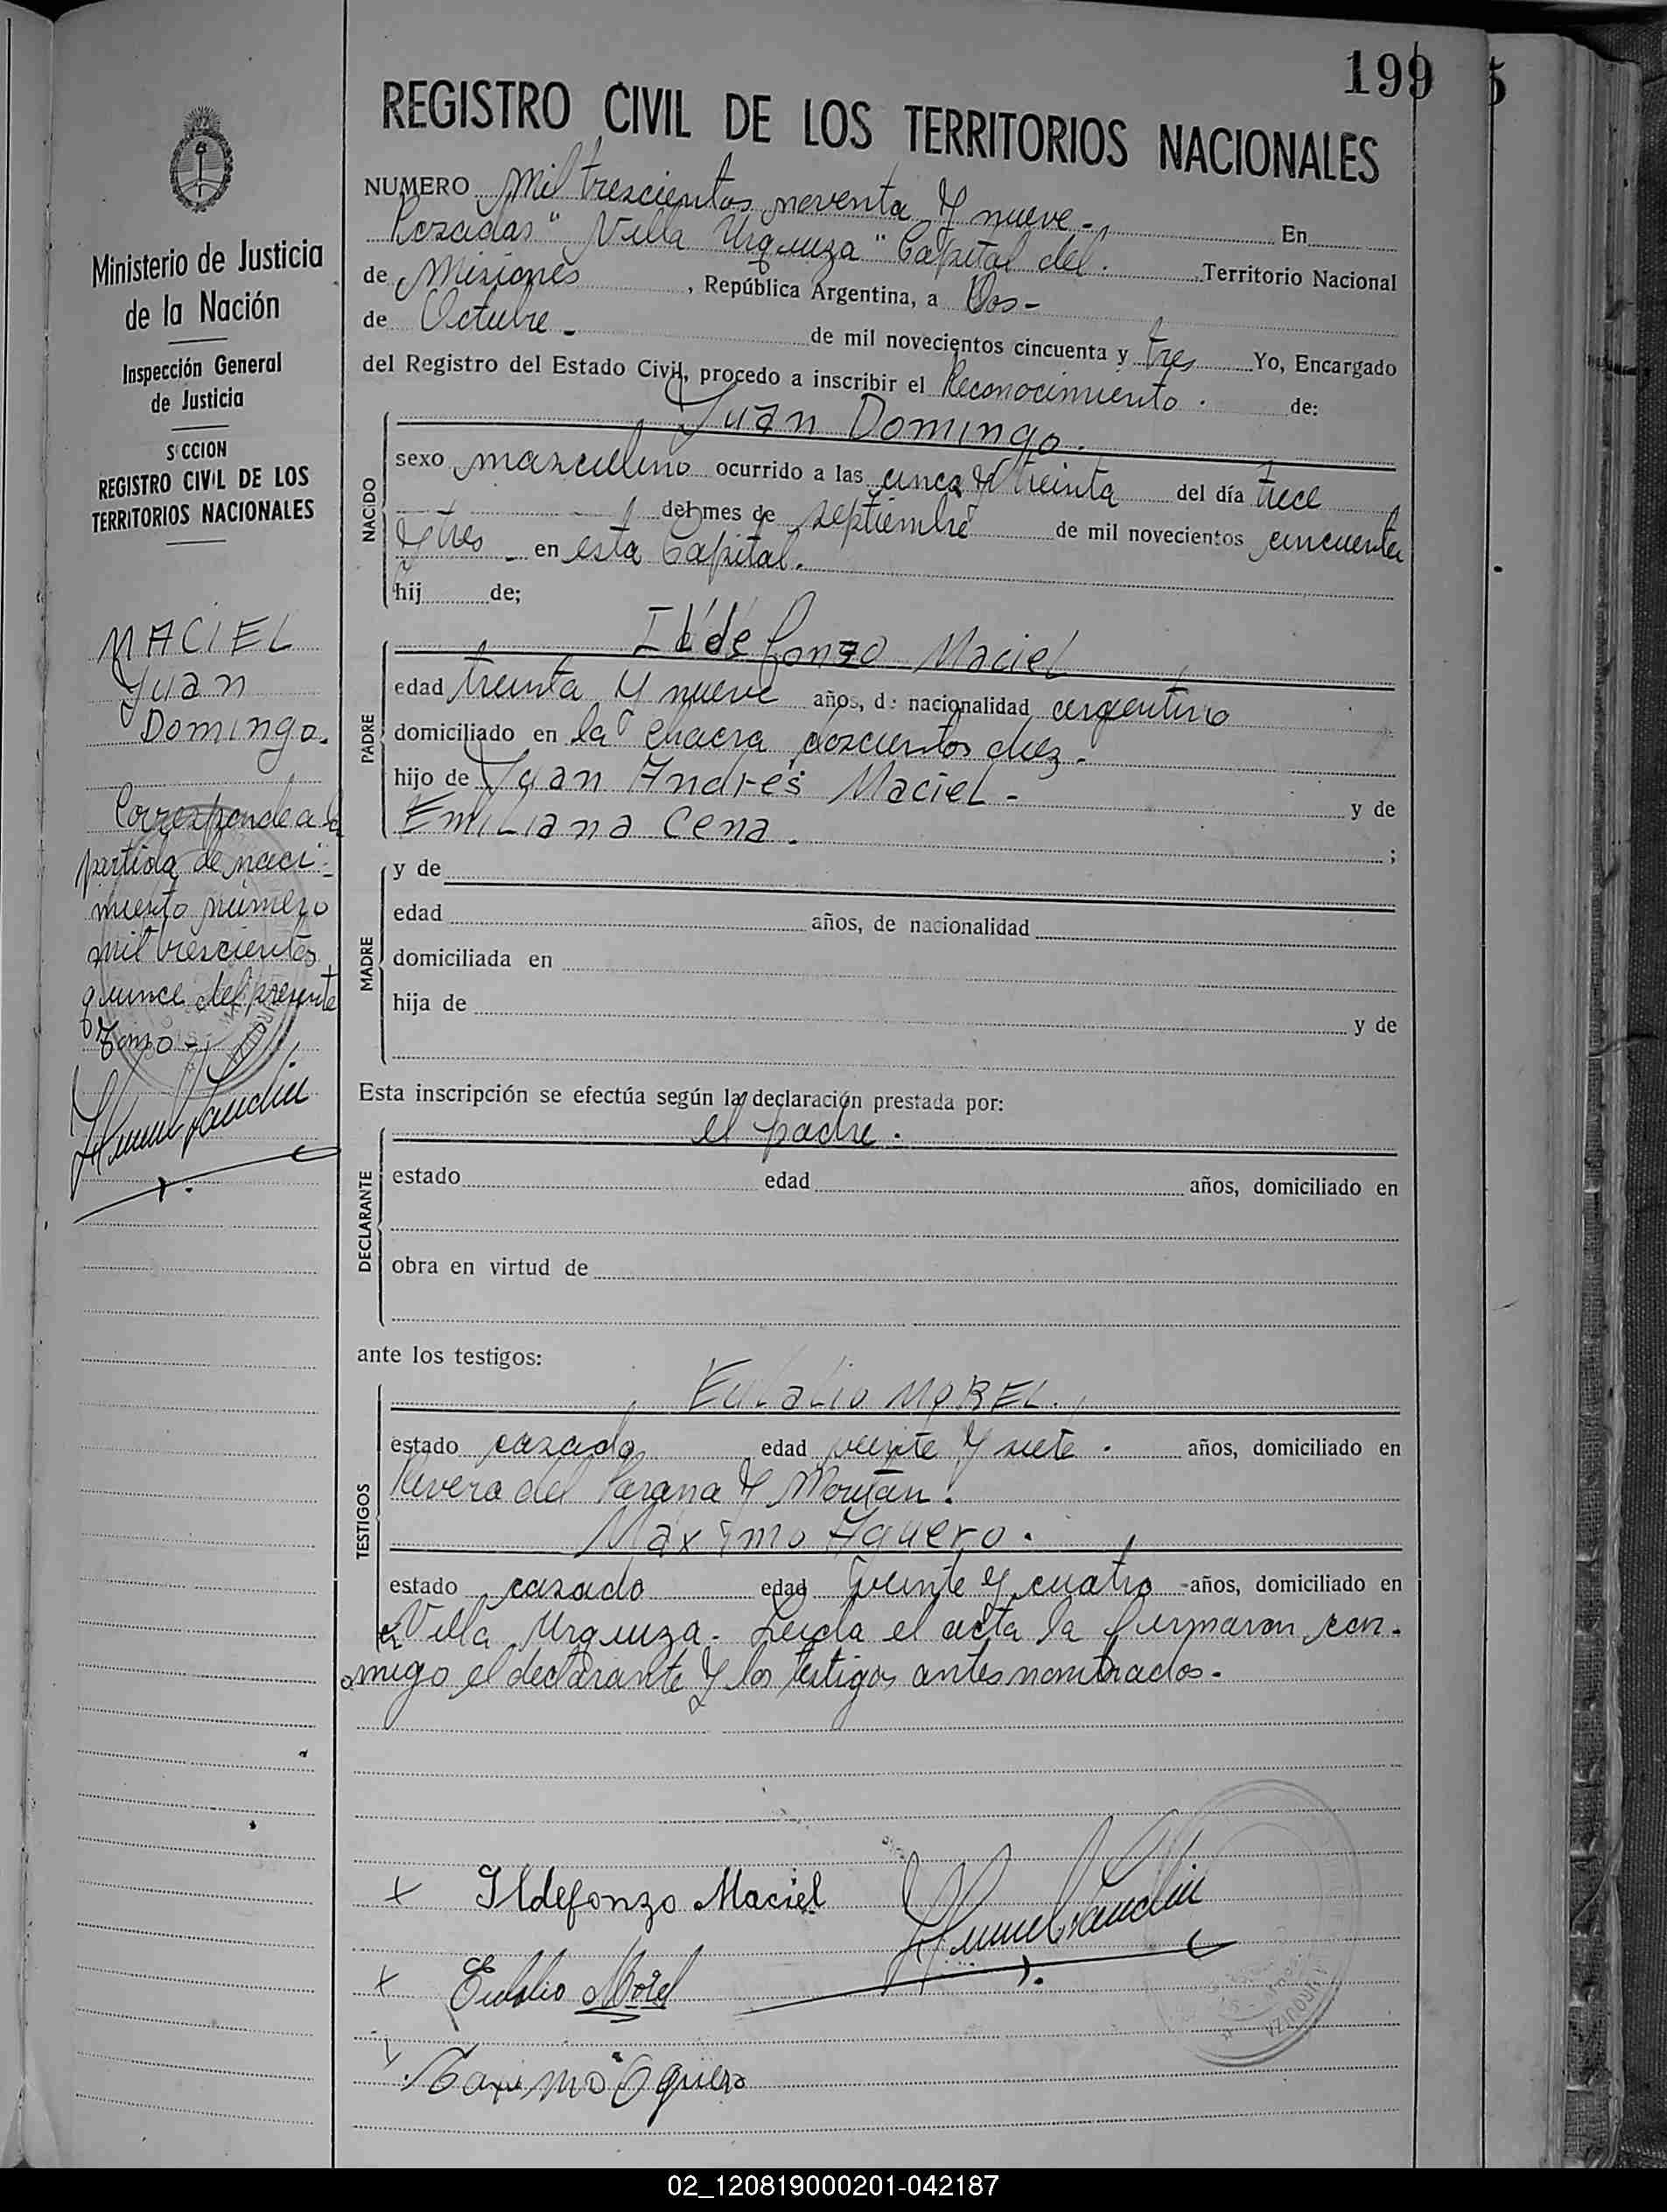 199
REGISTRO CIVIL DE LOS TERRITORIOS NACIONALES
NUMERO Mil trescientos noventa y nueve.- En
Posadas "Villa Urquiza" Capital del. Territorio Nacional
de Misiones, República Argentina, a Dos-
de Octubre - de mil novecientos cincuenta y tres Yo, Encargado
del Registro del Estado Civil, procedo a inscribir el Reconocimiento. de:
Juan Domingo.
NACIDO
sexo masculino ocurrido a las cinco y treinta del día trece
del mes de septiembre de mil novecientos cincuenta
y tres - en esta Capital.
hij de;
Ildefonzo Maciel
PADRE
edad treinta y nueve años, de nacionalidad argentino
domiciliado en la chacra doscientos diez.-
hijo de Juan Andrés Maciel - y de
Emiliana Cena. ;
MADRE
y de
edad años, de nacionalidad
domiciliada en
hija de y de
Esta inscripción se efectúa según la declaración prestada por:
el padre.
DECLARANTE
estado edad años, domiciliado en
obra en virtud de
ante los testigos:
TESTIGOS
Eulalio MOREL.
estado casado edad veinte y siete. años, domiciliado en
Rivera del Parana y
Máximo Aguero.
estado casado edad veinte y cuatro - años, domiciliado en
Villa Urquiza. Leida el acta la firmaron con-
migo el declarante y los testigos antes nombrados.-
Ildefonzo Maciel
Eulalio Morel
Maximo Aguero
Ministerio de Justicia
de la Nación
Inspección General
de Justicia
S CCION
REGISTRO CIVIL DE LOS
TERRITORIOS NACIONALES
MACIEL
Juan
Domingo.
Corresponde a la
partida de naci-
miento número
mil trescientos
quince del presente
Tomo-
02_120819000201-042187